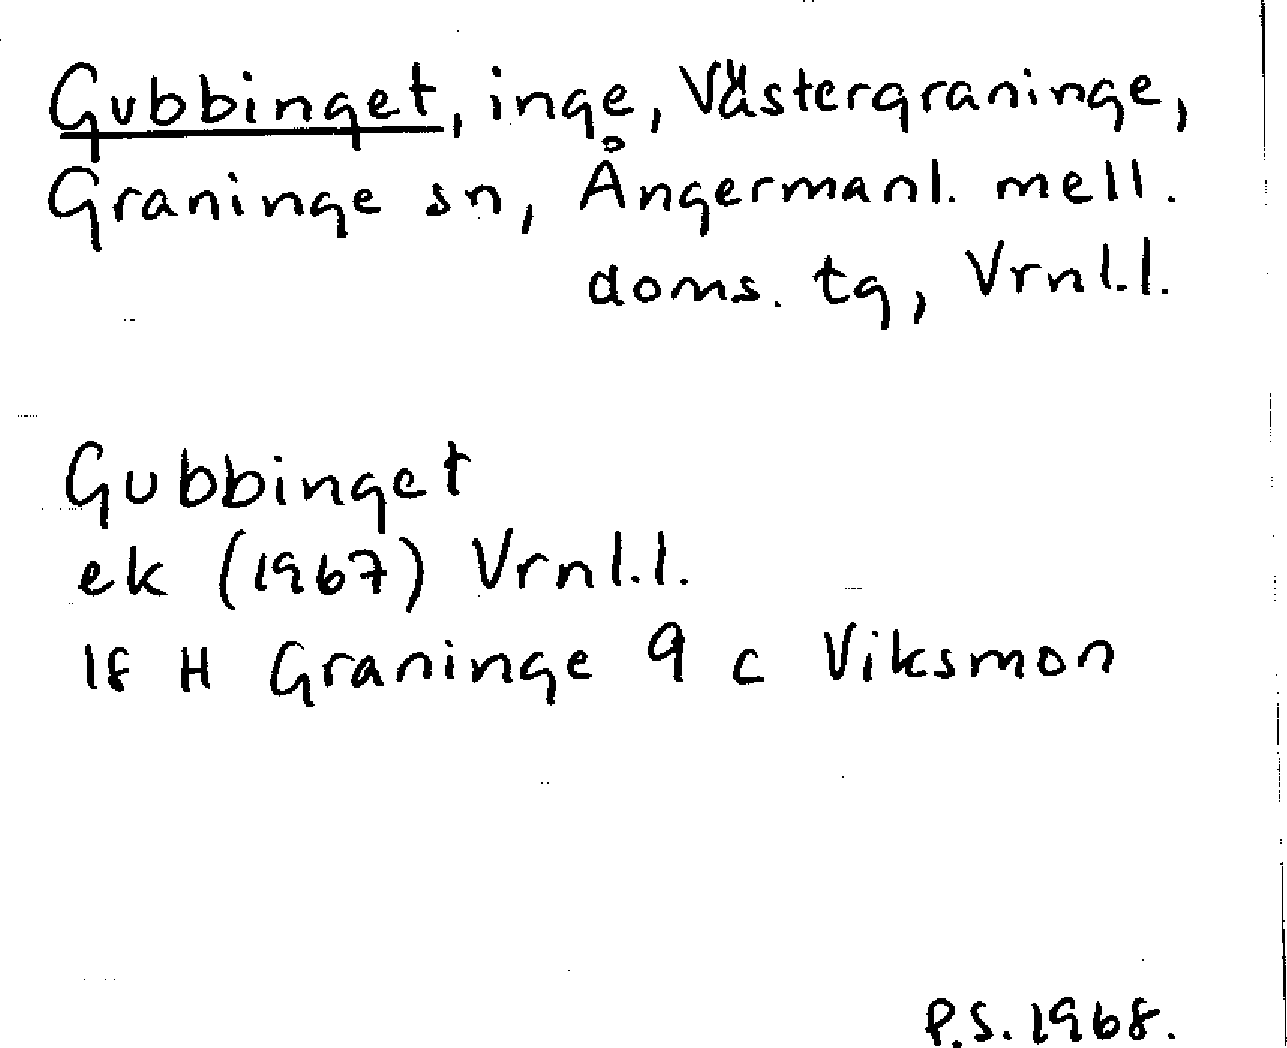 Gubbinget, inge, Västergraninge,
Graninge sn, Ångermanl. mell.
doms. tg, Vrnl.l.
Gubbinget
ek (1967) Vrnl.l.
18 H Graninge 9 c Viksmon
P.S. 1968.